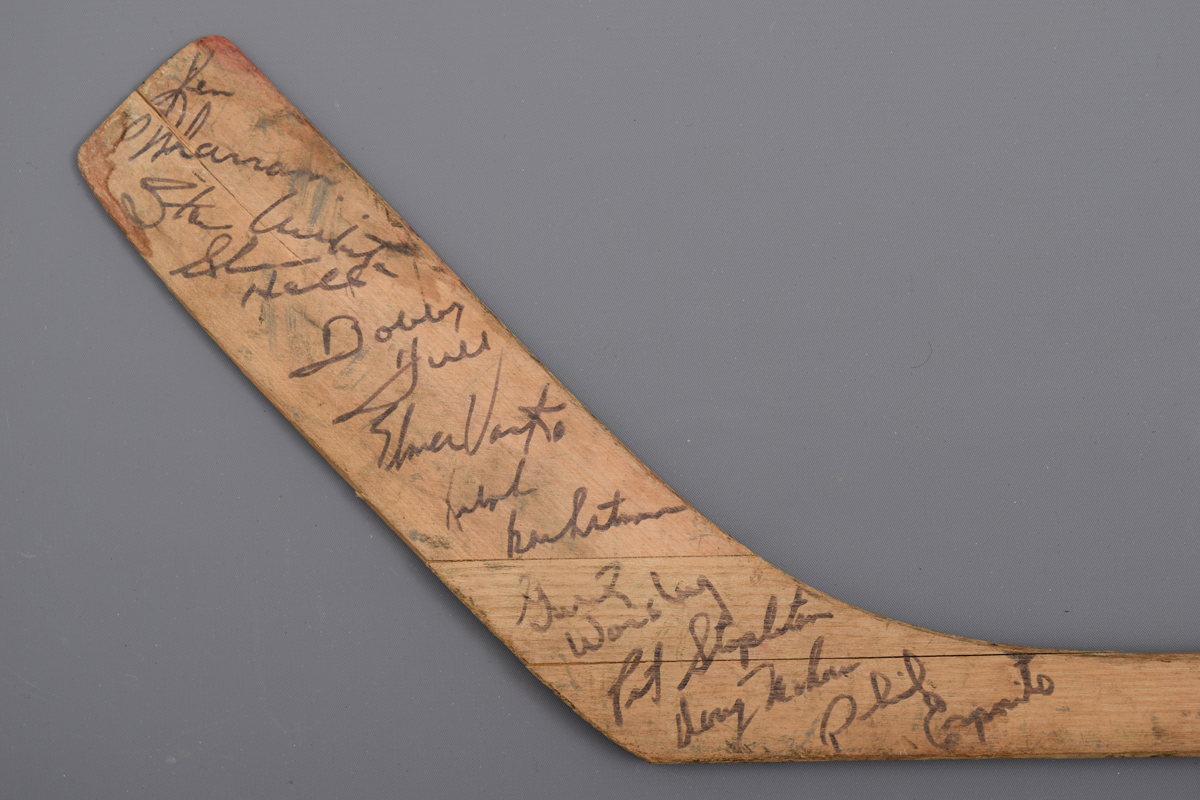 Ken
Wharram
Stan Mikita
Glenn
Hall
Bobby
Hull
Elmer Vasko
Worsley
Pat Stapleton
Doug Mohns
Phil
Esposito